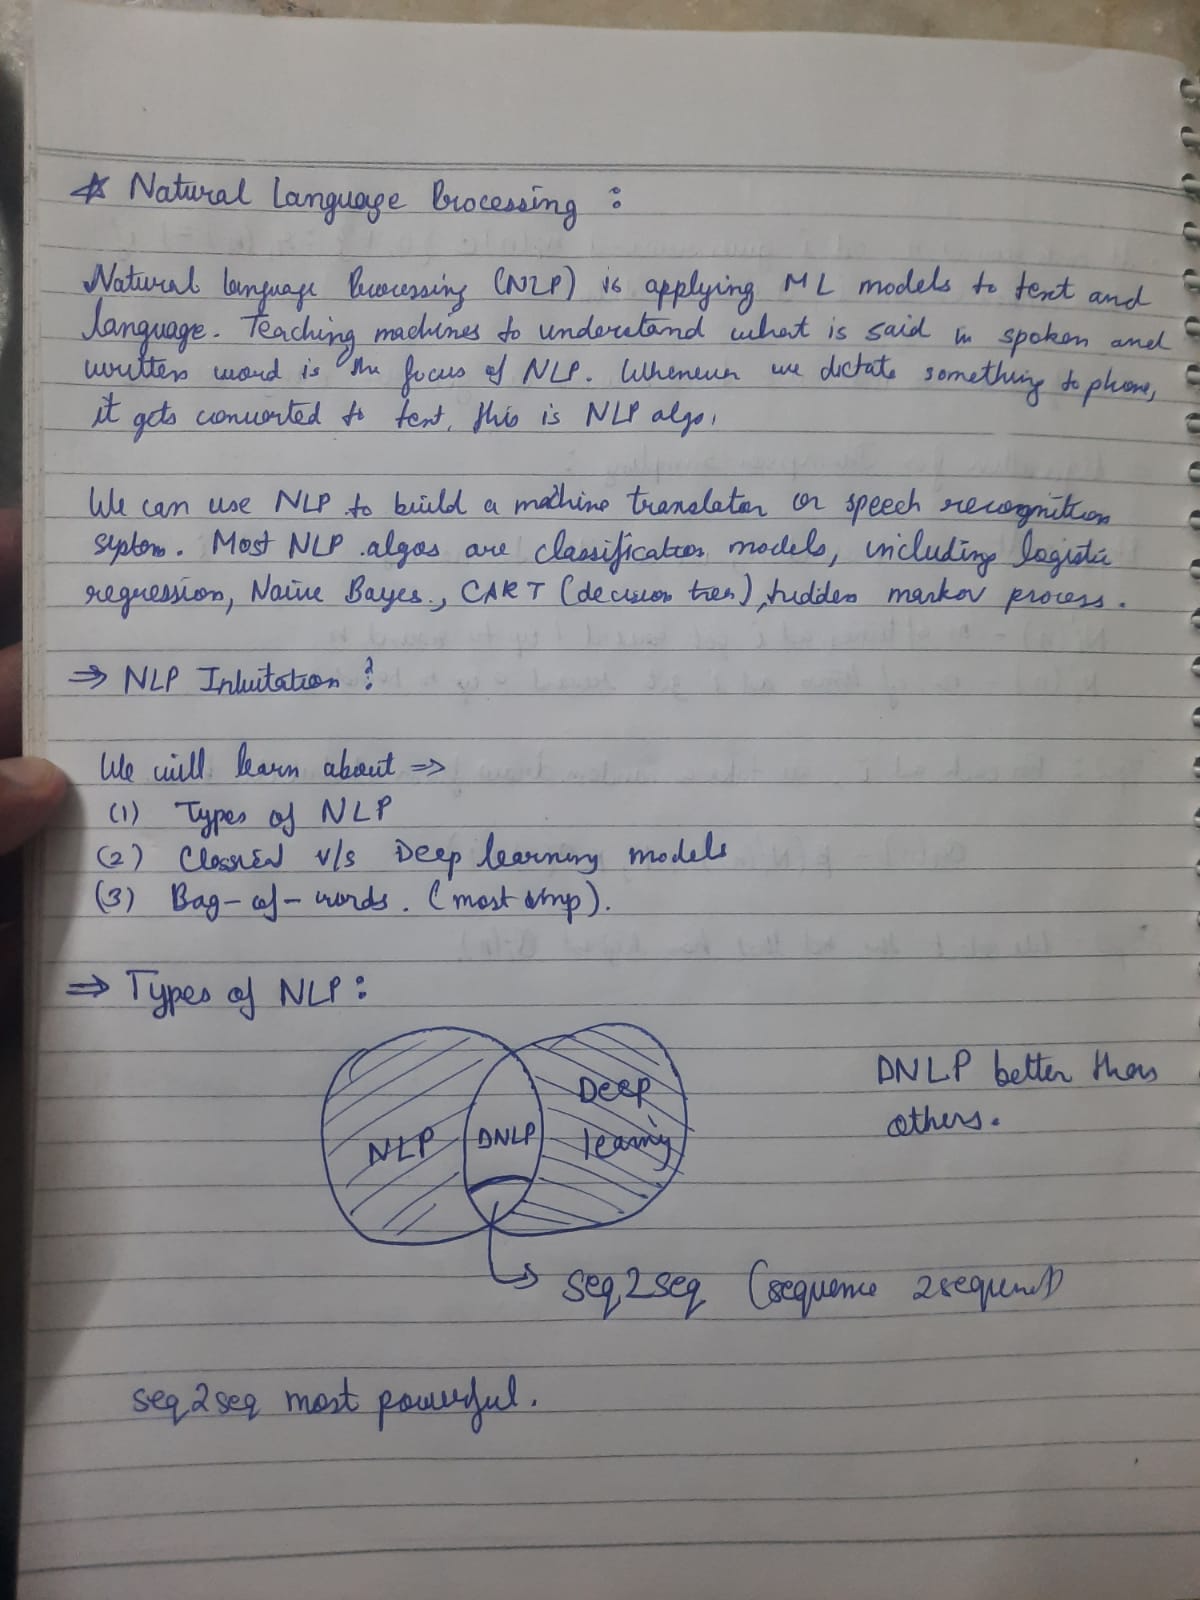 ☆ Natural Language Processing :
Natural language Processing (NLP) is applying ML models to text and
language. Teaching machines to understand what is said in spoken and
written word is the focus of NLP. Whenever we dictate something to phone,
it gets converted to text, this is NLP algo.
We can use NLP to build a machine translator or speech recognition
system. Most NLP algos are classification models, including logistic
regression, Naive Bayes, CART (decision tree), hidden markov process.
⇒ NLP Intuitation :
We will learn about ⇒
(1) Types of NLP
(2) Classical v/s Deep learning models
(3) Bag-of-words. (most imp).
⇒ Types of NLP :
NLP DNLP Deep
learning
DNLP better than
others.
→ seq2seq (sequence 2sequence)
seq2seq most powerful.